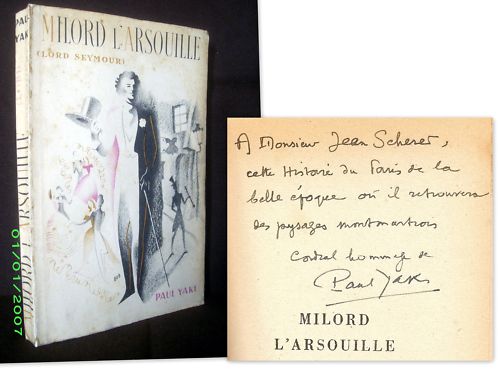 MILORD L'ARSOUILLE
(LORD SEYMOUR)
PAUL YAKI
PAUL YAKI
MILORD L'ARSOUILLE
01/01/2007
A Monsieur Jean Scherer,
cette Histoire du Paris de la
belle époque où il retrouvera
des paysages montmartrois
Cordial hommage de
Paul Yaki
MILORD
L'ARSOUILLE